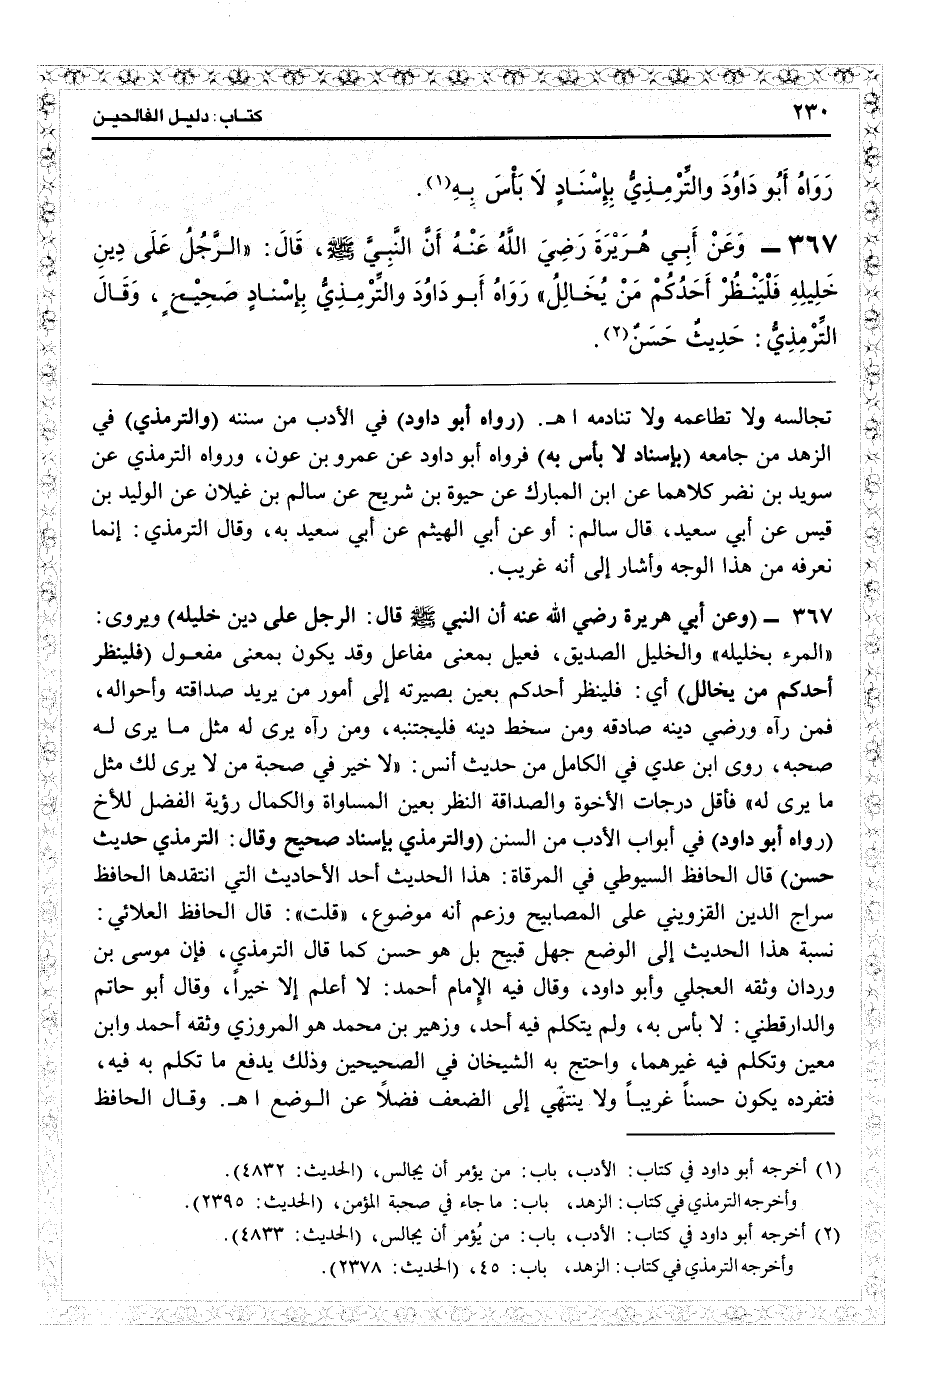 ٢٣٠ كتاب: دليل الفالحين
رَوَاهُ أَبُو دَاوُدَ والتِّرْمِذِيُّ بِإِسْنَادٍ لَا بَأْسَ بِهِ(١).
٣٦٧ ـ وَعَنْ أَبِي هُرَيْرَةَ رَضِيَ اللَّهُ عَنْهُ أَنَّ النَّبِيَّ ﷺ، قَالَ: «الرَّجُلُ عَلَى دِينِ
خَلِيلِهِ فَلْيَنْظُرْ أَحَدُكُمْ مَنْ يُخَالِلُ» رَوَاهُ أَبو دَاوُدَ والتِّرْمِذِيُّ بِإِسْنَادٍ صَحِيْحٍ، وَقَالَ
التِّرْمِذِيُّ: حَدِيثٌ حَسَنٌ(٢).
تجالسه ولا تطاعمه ولا تنادمه ا هـ. (رواه أبو داود) في الأدب من سننه (والترمذي) في
الزهد من جامعه (بإسناد لا بأس به) فرواه أبو داود عن عمرو بن عون، ورواه الترمذي عن
سويد بن نضر كلاهما عن ابن المبارك عن حيوة بن شريح عن سالم بن غيلان عن الوليد بن
قيس عن أبي سعيد، قال سالم: أو عن أبي الهيثم عن أبي سعيد به، وقال الترمذي: إنما
نعرفه من هذا الوجه وأشار إلى أنه غريب.
٣٦٧ ـ (وعن أبي هريرة رضي الله عنه أن النبي ﷺ قال: الرجل على دين خليله) ويروى:
«المرء بخليله» والخليل الصديق، فعيل بمعنى مفاعل وقد يكون بمعنى مفعول (فلينظر
أحدكم من يخالل) أي: فلينظر أحدكم بعين بصيرته إلى أمور من يريد صداقته وأحواله،
فمن رآه ورضي دينه صادقه ومن سخط دينه فليجتنبه، ومن رآه يرى له مثل ما يرى له
صحبه، روى ابن عدي في الكامل من حديث أنس: «لا خير في صحبة من لا يرى لك مثل
ما يرى له» فأقل درجات الأخوة والصداقة النظر بعين المساواة والكمال رؤية الفضل للأخ
(رواه أبو داود) في أبواب الأدب من السنن (والترمذي بإسناد صحيح وقال: الترمذي حديث
حسن) قال الحافظ السيوطي في المرقاة: هذا الحديث أحد الأحاديث التي انتقدها الحافظ
سراج الدين القزويني على المصابيح وزعم أنه موضوع، «قلت»: قال الحافظ العلائي:
نسبة هذا الحديث إلى الوضع جهل قبيح بل هو حسن كما قال الترمذي، فإن موسى بن
وردان وثقه العجلي وأبو داود، وقال فيه الإمام أحمد: لا أعلم إلا خيراً، وقال أبو حاتم
والدارقطني: لا بأس به، ولم يتكلم فيه أحد، وزهير بن محمد هو المروزي وثقه أحمد وابن
معين وتكلم فيه غيرهما، واحتج به الشيخان في الصحيحين وذلك يدفع ما تكلم به فيه،
فتفرده يكون حسناً غريباً ولا ينتهّي إلى الضعف فضلاً عن الوضع ا هـ. وقال الحافظ
(١) أخرجه أبو داود في كتاب: الأدب، باب: من يؤمر أن يجالس، (الحديث: ٤٨٣٢).
وأخرجه الترمذي في كتاب: الزهد، باب: ما جاء في صحبة المؤمن، (الحديث: ٢٣٩٥).
(٢) أخرجه أبو داود في كتاب: الأدب، باب: من يُؤمر أن يجالس، (الحديث: ٤٨٣٣).
وأخرجه الترمذي في كتاب: الزهد، باب: ٤٥، (الحديث: ٢٣٧٨).